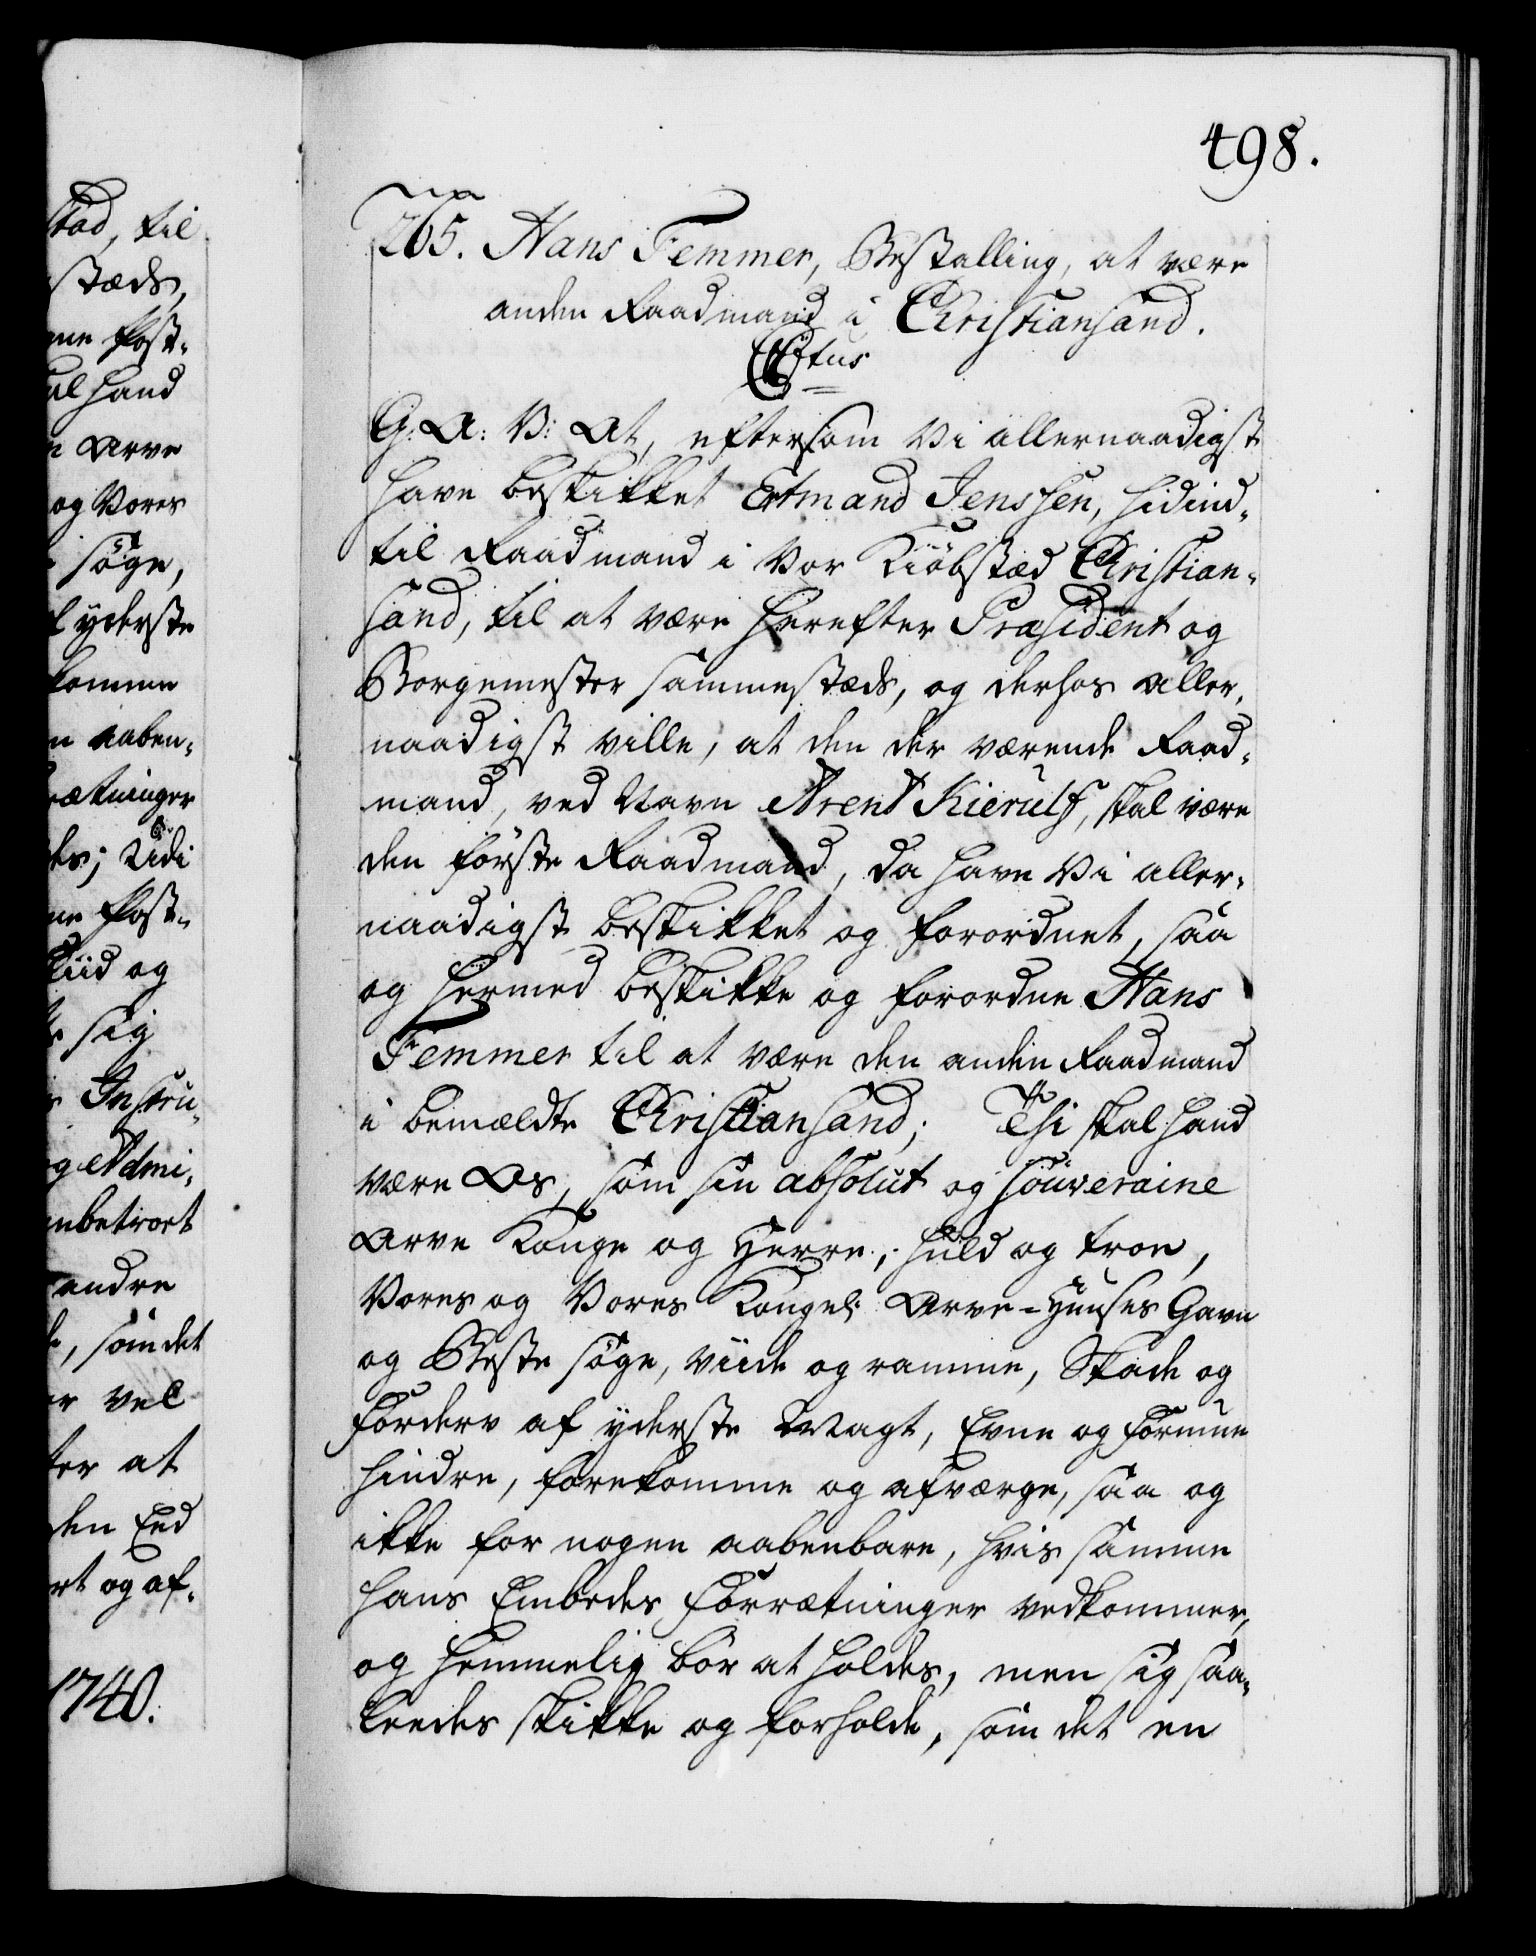 stæd, til
stæds,
Post-
skal hand
Arve
og Vores
søge,
yderste
komme
aaben-
rætninger
Udi
Post-
Tiid og
sig
Instru-
og Admi-
anbetroet
andre
, som det
vel
at
den Eed
og af-
1740.
498.
265. Hans Femmer, Bestalling, at være
anden Raadmand i Christiansand.
C 6tus
G: A: V: At, eftersom Vi allernaadigst
have beskikket Ertmand Jenssen, hidind-
til Raadmand i Vor Kiöbstæd Christian-
sand, til at være herefter Præsident og
Borgemester sammestæds, og derhos aller-
naadigst ville, at den der værende Raad-
mand, ved Navn Arent Kierulf, skal være
den förste Raadmand, da have Vi aller-
naadigst beskikket og forordnet, saa
og hermed beskikke og forordne Hans
Femmer til at være den anden Raadmand
i bemældte Christiansand; Thi skal hand
være Os, som sin absolut og souveraine
Arve Konge og Herre, huld og troe,
Vores og Vores Kongel: Arve-Huuses Gavn
og Beste söge, viide og ramme, Skade og
Forderv af yderste Magt, Evne og Formue
hindre, forekomme og afværge, saa og
ikke for nogen aabenbare, hvis samme
hans Embedes Forrætninger vedkommer,
og hemmelig bör at holdes, men sig saa-
ledes skikke og forholde, som det en